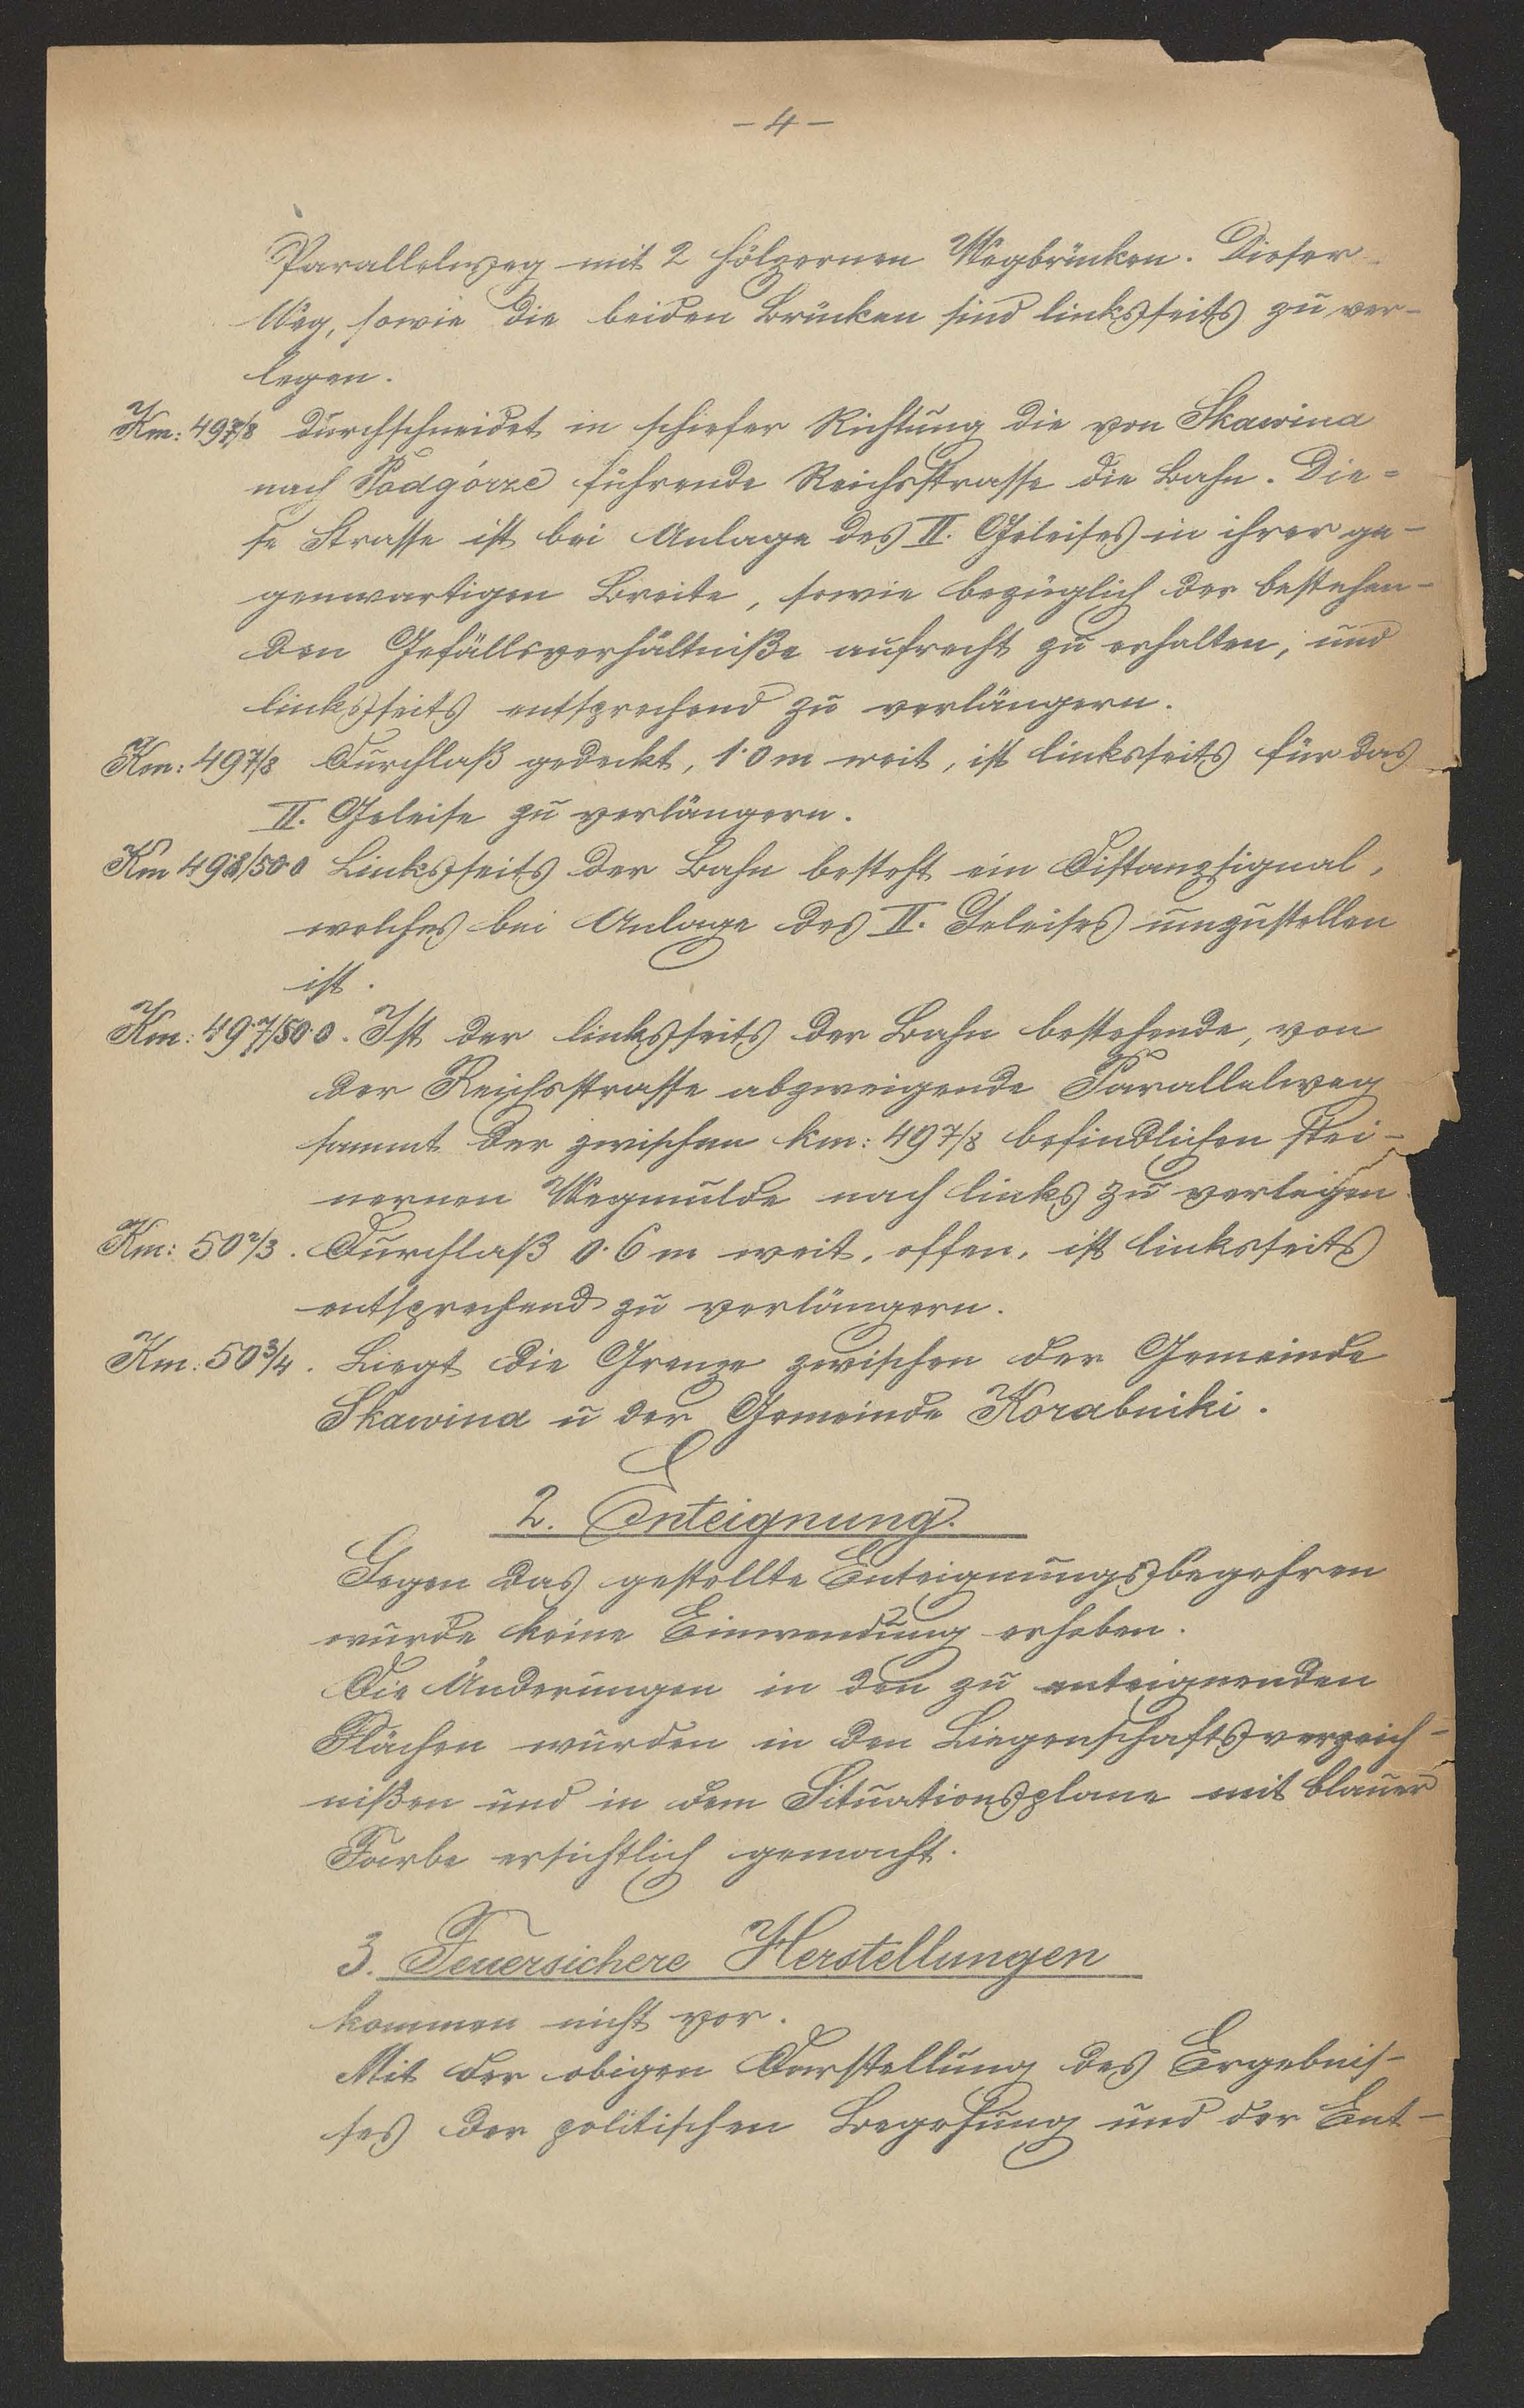 - 4 -
Parallelweg mit 2 hölzernen Wegbrücken. Dieser
Weg, sowie die beiden Brücken sind linksseits zu ver-
legen.
Km: 497/8 durchschneidet in schiefer Richtung die von Skawina
nach Podgórze führende Reichsstrasse die Bahn. Die=
se Strasse ist bei Anlage des II. Geleises in ihrer ge-
genwartigen Breite, sowie bezüglich der bestehen-
den Gefällsverhältniße aufrecht zu erhalten, und
linksseits entsprechend zu verlängern.
Km: 497/8 Durchlaß gedeckt, 1·0 m weit, ist linksseits für das
II. Geleise zu verlängern.
Km 498/50·0 Linksseits der Bahn besteht ein Distanzsignal,
welches bei Anlage des II. Geleises umzustellen
ist.
Km: 49·7/50·0. Ist der linksseits der Bahn bestehende, von
der Reichsstrasse abzweigende Parallelweg
sammt der zwischen km: 497/8 befindlichen stei-
nernen Wegmulde nach links zu verlegen.
Km: 50 2/3. Durchlaß 0·6 m weit, offen, ist linksseits
entsprechend zu verlängern.
Km: 50 3/4. Liegt die Grenze zwischen der Gemeinde
Skawina u der Gemeinde Korabniki.
2. Enteignung.
Gegen das gestellte Enteignungsbegehren
wurde keine Einwendung erhoben.
Die Änderungen in den zu enteignenden
Flächen wurden in den Liegenschaftsverzeich-
nißen und in dem Situationsplane mit blauer
Farbe ersichtlich gemacht.
3. Feuersichere Herstellungen
kommen nicht vor.
Mit der obigen Darstellung des Ergebnis-
ses der politischen Begehung und der Ent-